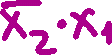 x̅₂·x₁